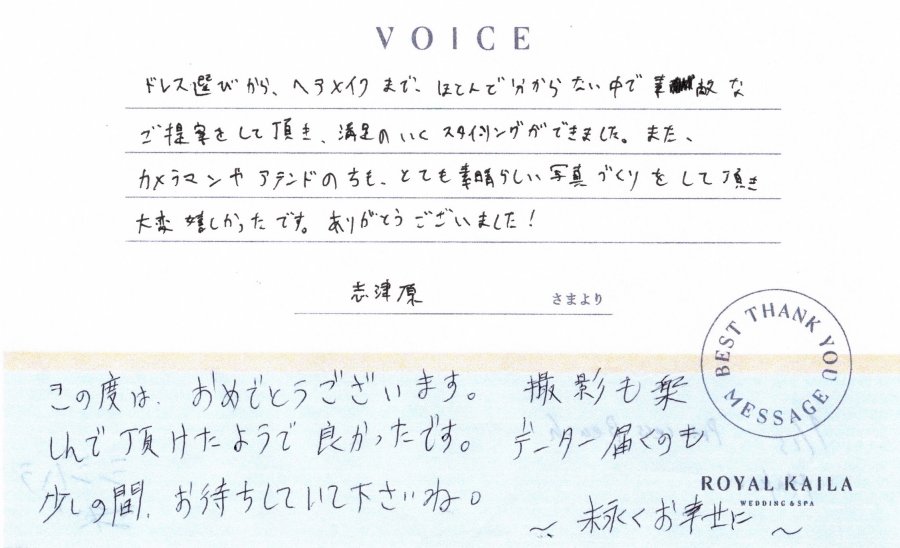 VOICE
ドレス選びから、ヘアメイクまで、ほとんど分からない中で素敵な
ご提案をして頂き、満足のいくスタイリングができました。また、
カメラマンやアテンドのちも、とても素晴らしい写真づくりをして頂き
大変嬉しかったです。ありがとうございました!
志津原 さまより
BEST THANK YOU MESSAGE
この度は、おめでとうございます。撮影も楽
しんで頂けたようで良かったです。データー届くのも
少しの間、お待ちしていて下さいね。
〜末永くお幸せに〜
ROYAL KAILA
WEDDING & SPA